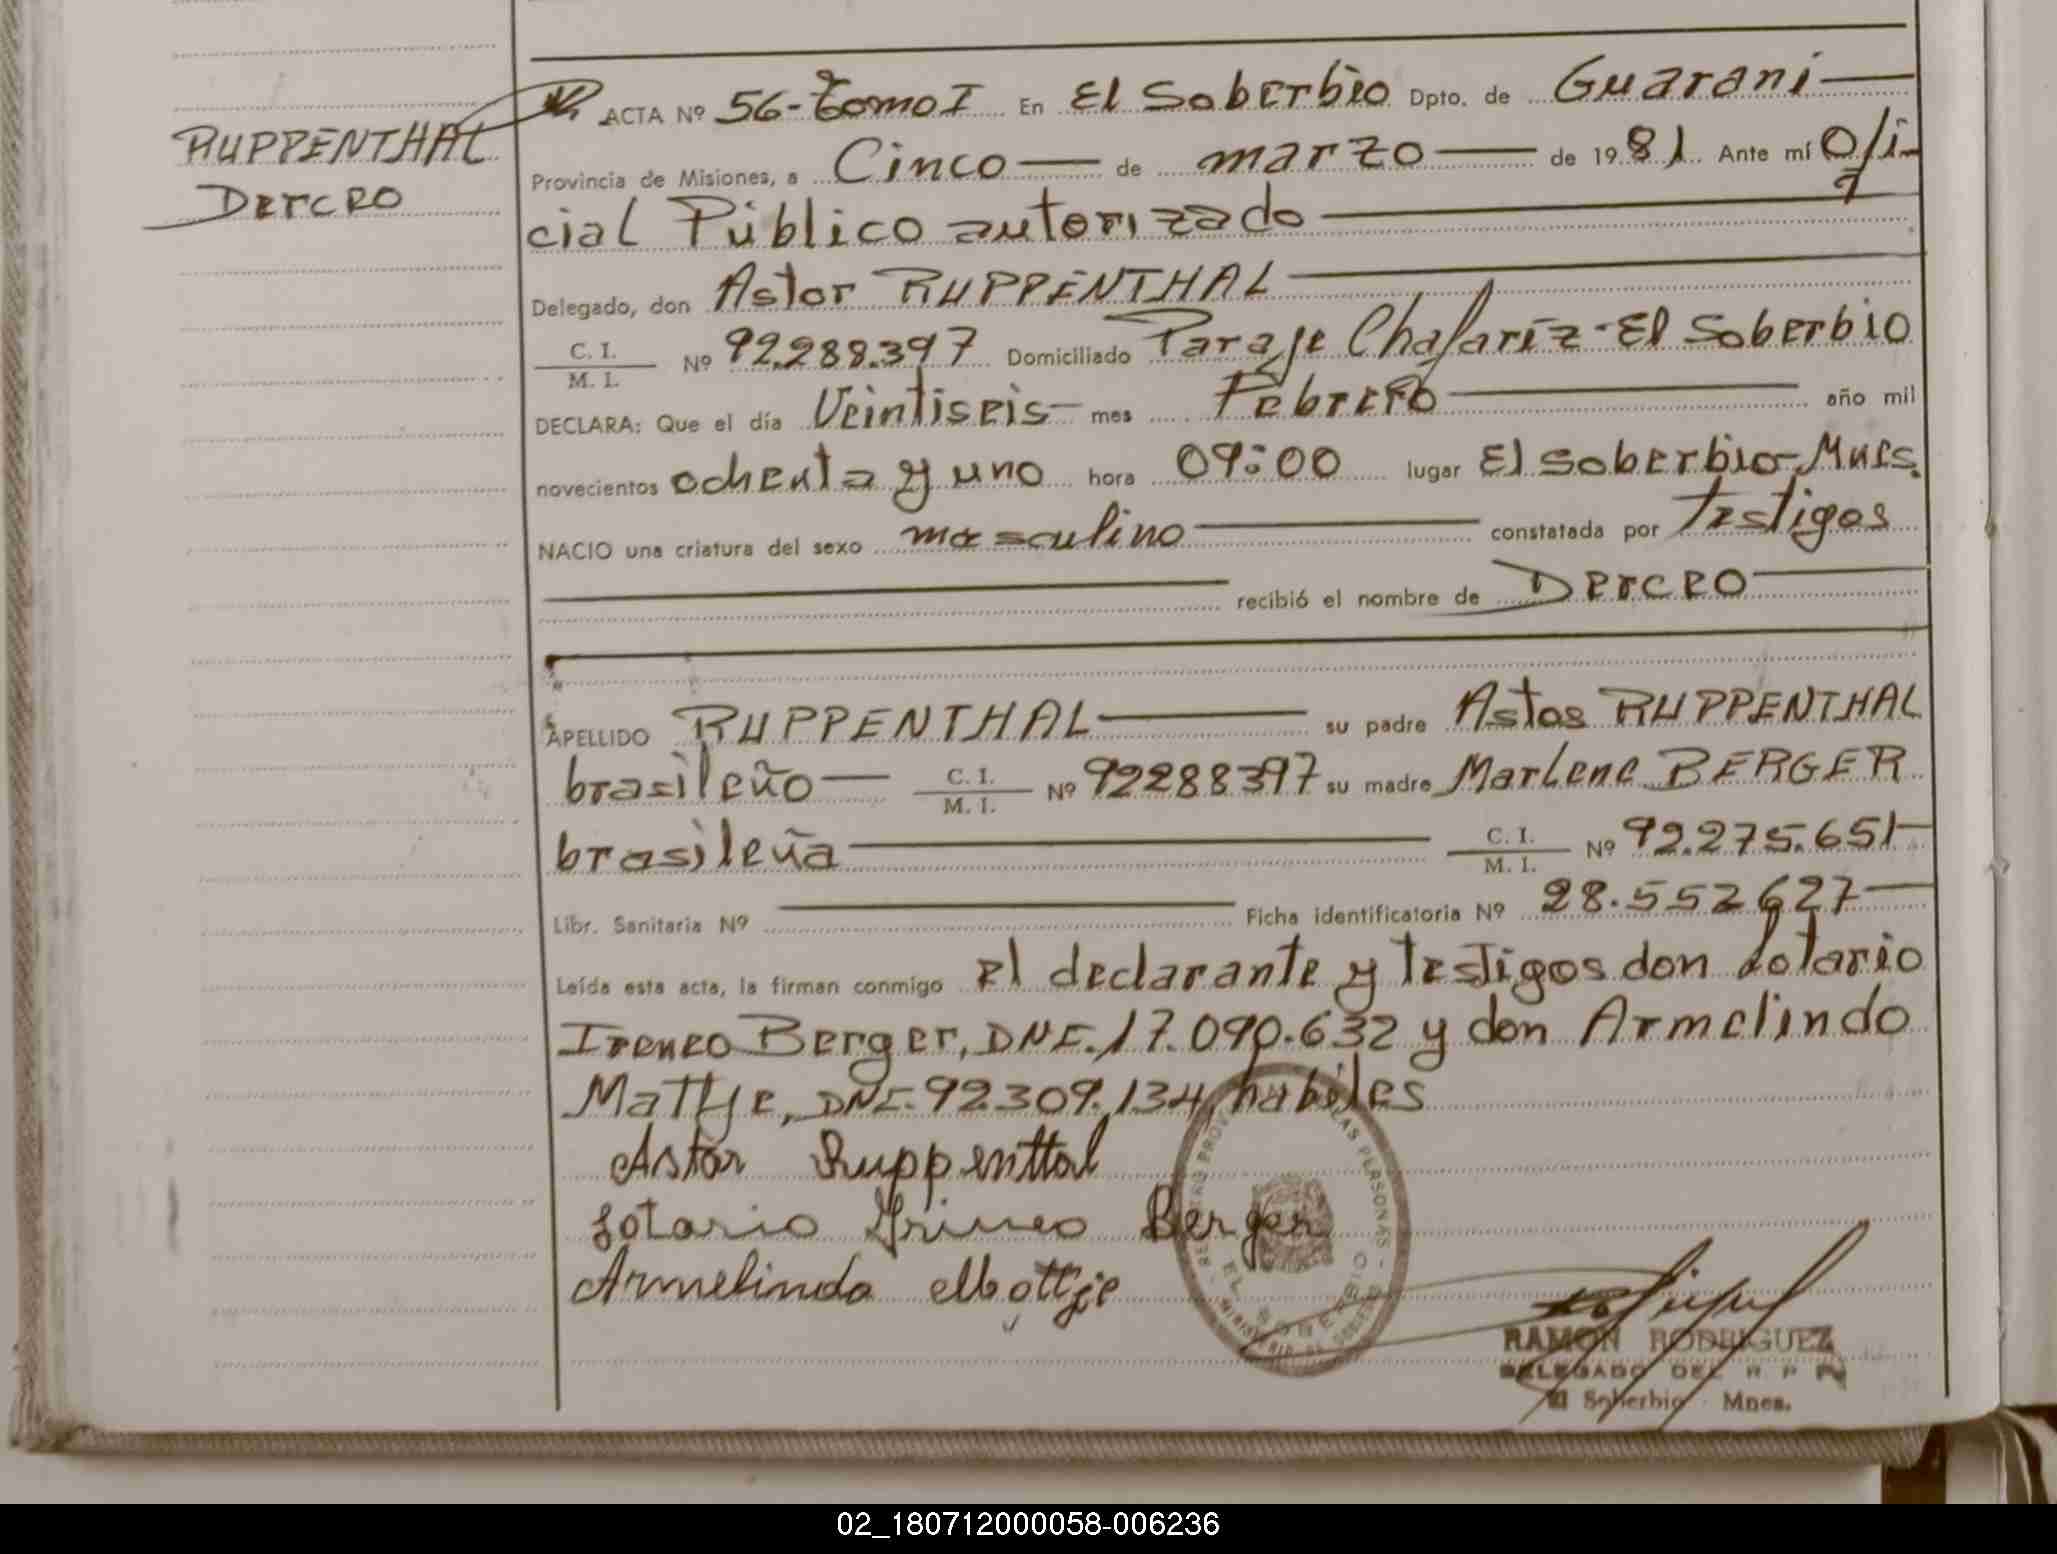 RUPPENTHAL
Dercео
ACTA Nº 56-Tomo I En El Soberbio Dpto. de Guarani
Provincia de Misiones, a Cinco de marzo de 1981 Ante mí Ofi-
cial Público autorizado
Delegado, don Astor RUPPENTHAL
C. I.
M. I.
Nº 92.288.397 Domiciliado Paraje Chafariz-El Soberbio
DECLARA: Que el día Veintiseis mes Febrero año mil
novecientos ochenta y uno hora 09:00 lugar El Soberbio-Mnes.
NACIO una criatura del sexo masculino constatada por Testigos
recibió el nombre de Derceo
APELLIDO RUPPENTHAL su padre Astor RUPPENTHAL
brasileño C. I. M. I. Nº 92288397 su madre Marlene BERGER
brasileña C. I. M. I. Nº 92.275.651
Libr. Sanitaria Nº Ficha identificatoria Nº 28.552627
Leída esta acta, la firman conmigo el declarante y testigos don Lotario
Ireneo Berger, DNI. 17.090.632 y don Armelindo
Mattje, DNI. 92.309.134, habiles
Astor Ruppenttal
Lotario Irineo Berger
Armelindo Mottje
EL SOBERBIO
RAMON RODRIGUEZ
DELEGADO DEL R P
El Soberbio Mnes.
02_180712000058-006236